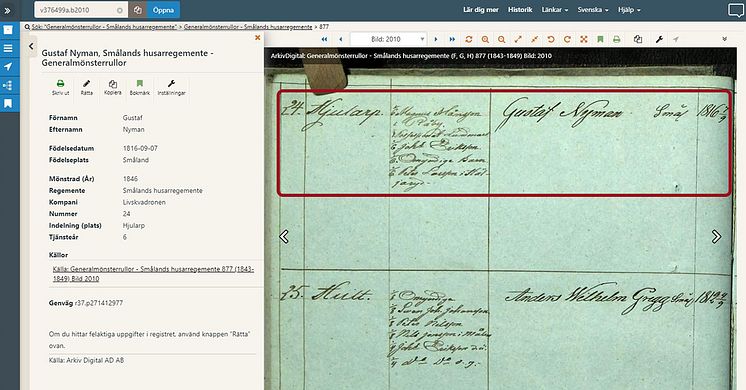 v376499a.b2010
Öppna
Lär dig mer
Historik
Länkar
Svenska
Hjälp
Sök: "Generalmönsterrullor - Smålands husarregemente" > Generalmönsterrullor - Smålands husarregemente > 877
Bild: 2010
Gustaf Nyman, Smålands husarregemente -
Generalmönsterrullor
Skriv ut
Rätta
Kopiera
Bokmärk
Inställningar
Förnamn Gustaf
Efternamn Nyman
Födelsedatum 1816-09-07
Födelseplats Småland
Mönstrad (År) 1846
Regemente Smålands husarregemente
Kompani Livskvadronen
Nummer 24
Indelning (plats) Hjularp
Tjänsteår 6
Källor
Källa: Generalmönsterrullor - Smålands husarregemente 877 (1843-
1849) Bild 2010
Genväg r37.p271412977
Om du hittar felaktiga uppgifter i registret, använd knappen "Rätta"
ovan.
Källa: Arkiv Digital AD AB
ArkivDigital: Generalmönsterrullor - Smålands husarregemente (F, G, H) 877 (1843-1849) Bild: 2010
24. Hjularp.
Gustaf Nyman Smål 1816 7/9
25. Hult.
Anders Wilhelm Gregg Smål